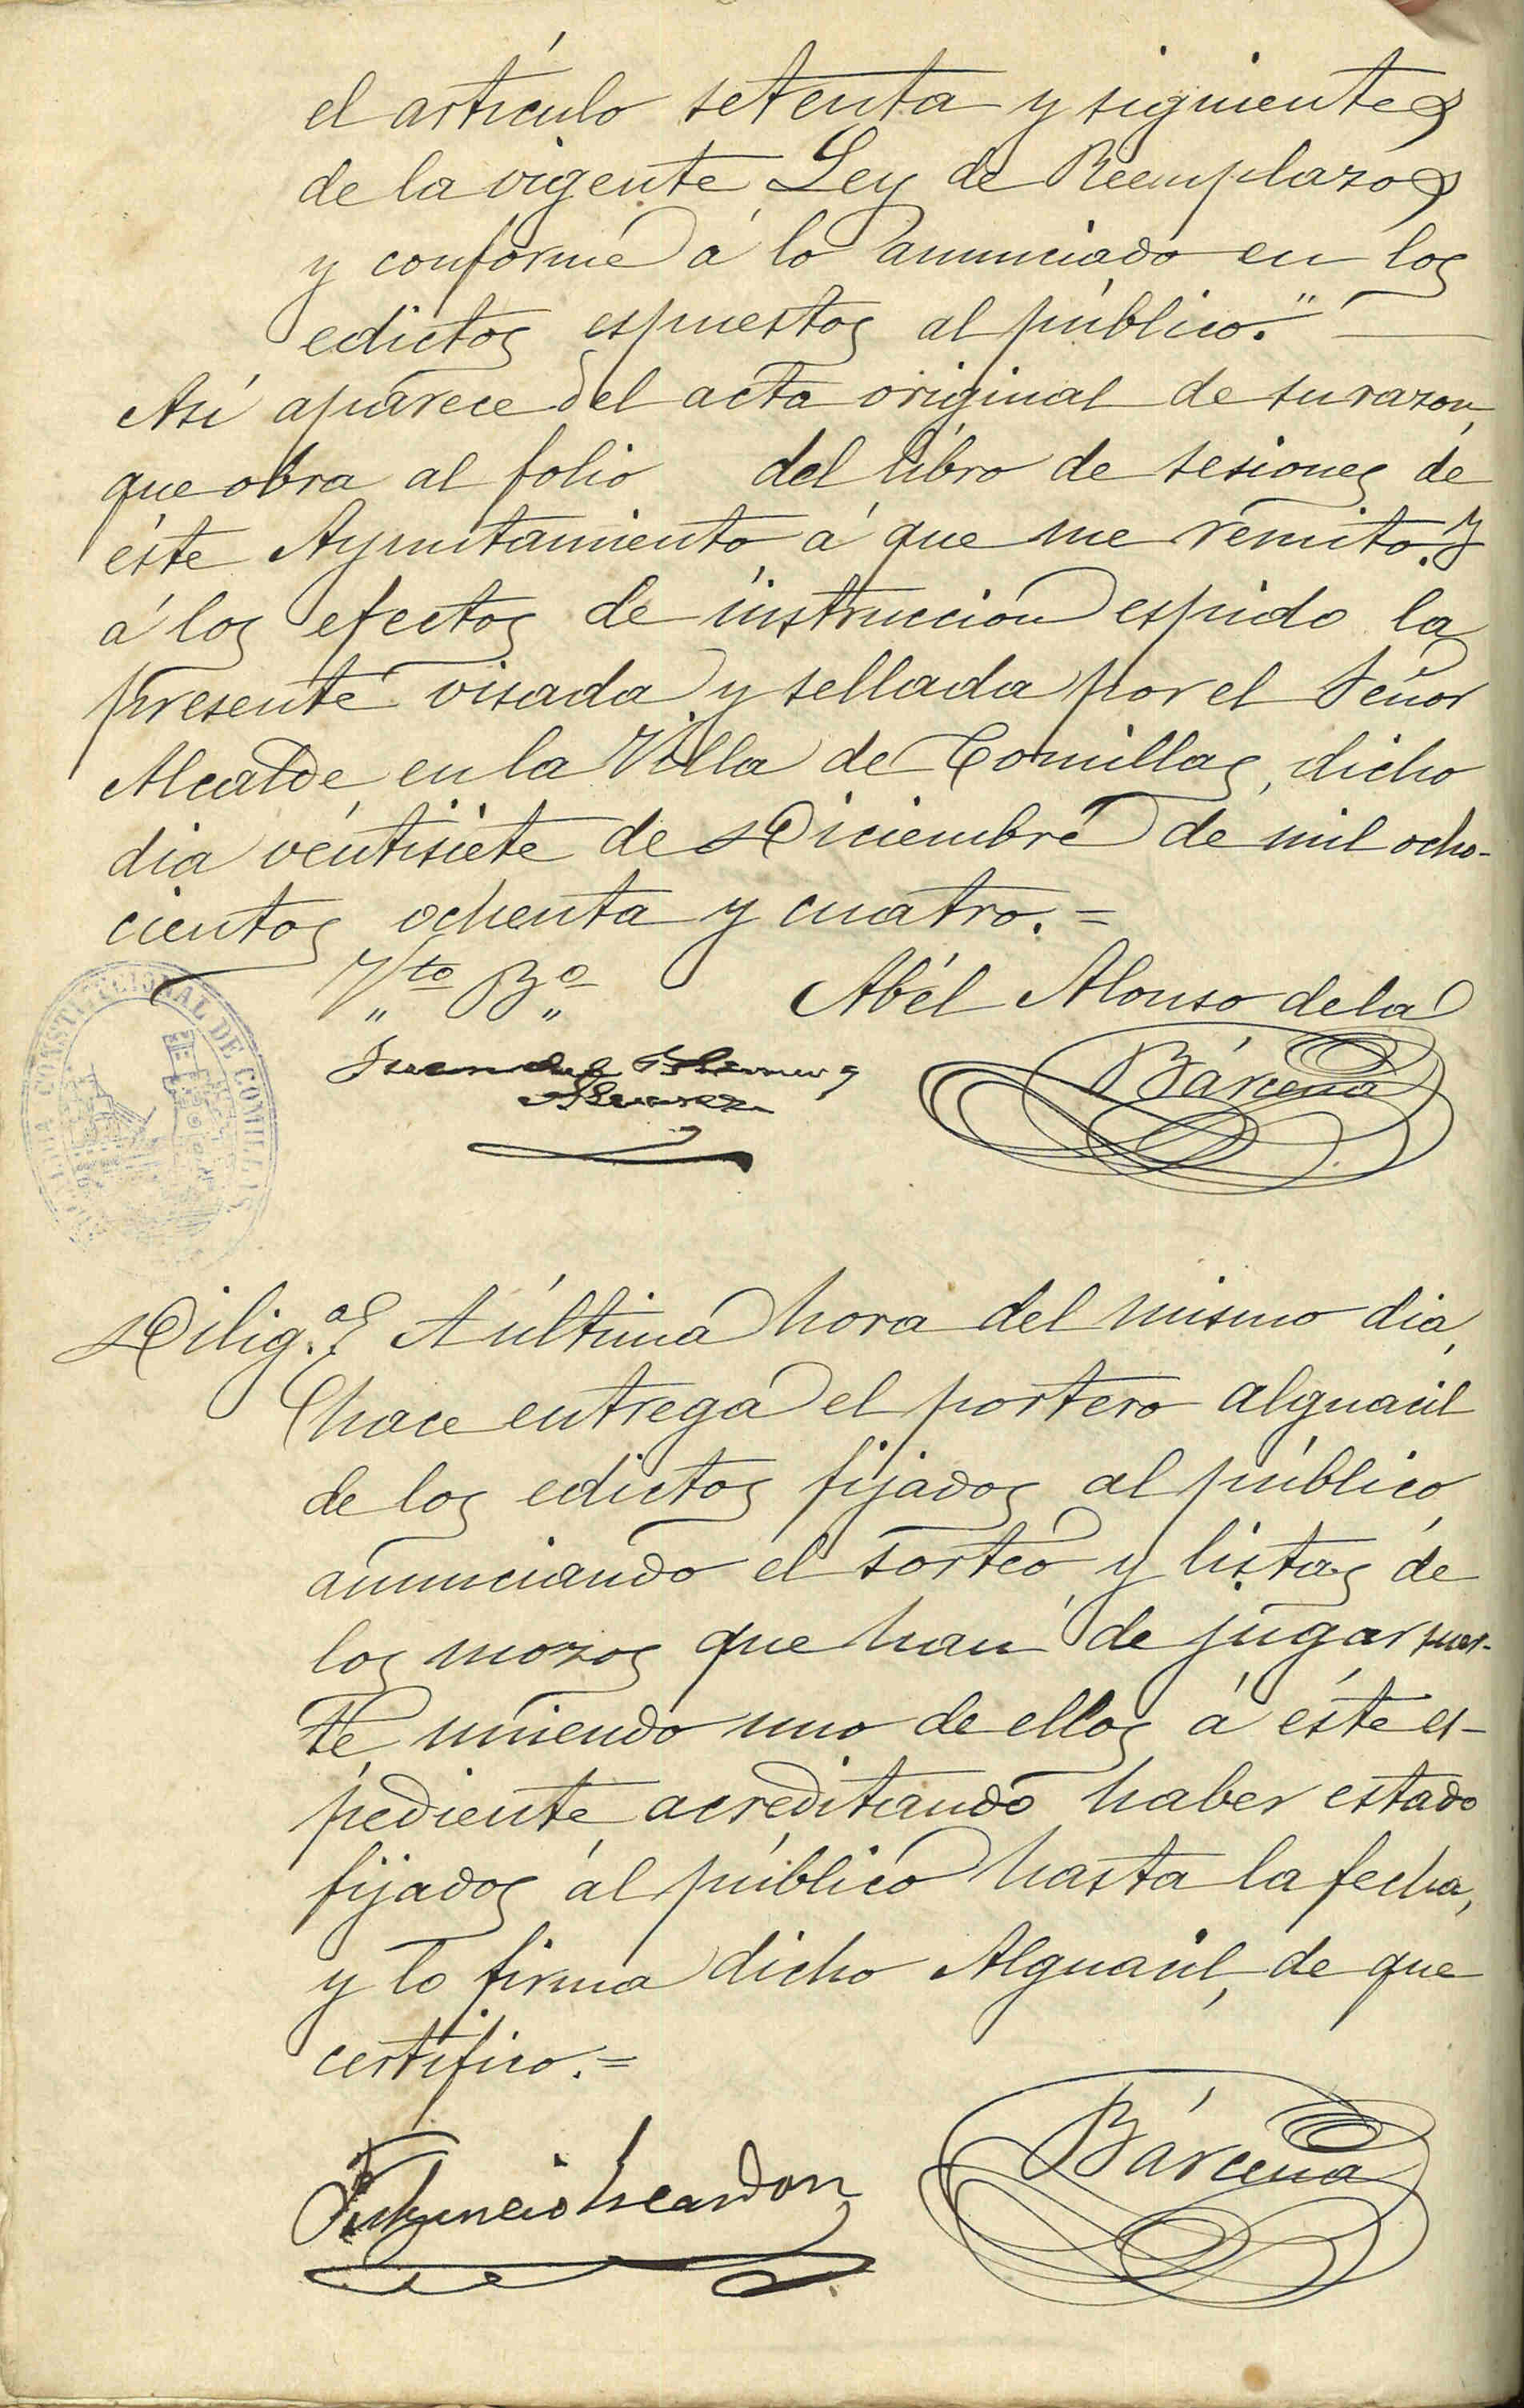 el artículo setenta y siguientes
de la vigente Ley de Reemplazos
y conforme á lo anunciado en los
edictos espuestos al público."
Asi aparece del acta original de su razon,
que obra al folio del libro de sesiones de
éste Ayuntamiento á que me remito. Y
á los efectos de instruccion espido la
presente visada y sellada por el Señor
Alcalde, en la Villa de Comillas, dicho
dia ventisiete de Diciembre de mil ocho-
cientos ochenta y cuatro.=
Vto Bo
Abél Alonso de la
Bárcena
Juan
Alvarez
ALCALDIA CONSTITUCIONAL DE COMILLAS
Diliga. A última hora del mismo dia,
hace entrega el portero alguacil
de los edictos fijados al público,
anunciando el sorteo y listas de
los mozos que han de jugar suer-
te uniendo uno de ellos á éste es-
pediente, acreditando haber estado
fijados al público hasta la fecha,
y lo firma dicho Alguacil, de que
certifico.=
Bárcena